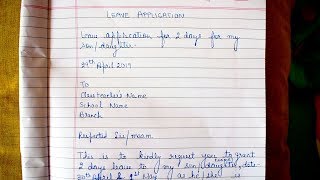 LEAVE APPLICATION
Leave application for 2 days for my
son/daughter.
29th April 2019
To
Classteacher's Name
School Name
Branch
Respected Sir/mam.
This is to kindly request you to grant
2 days leave to my son/daughter, date
30th April & 1st May as he/she is